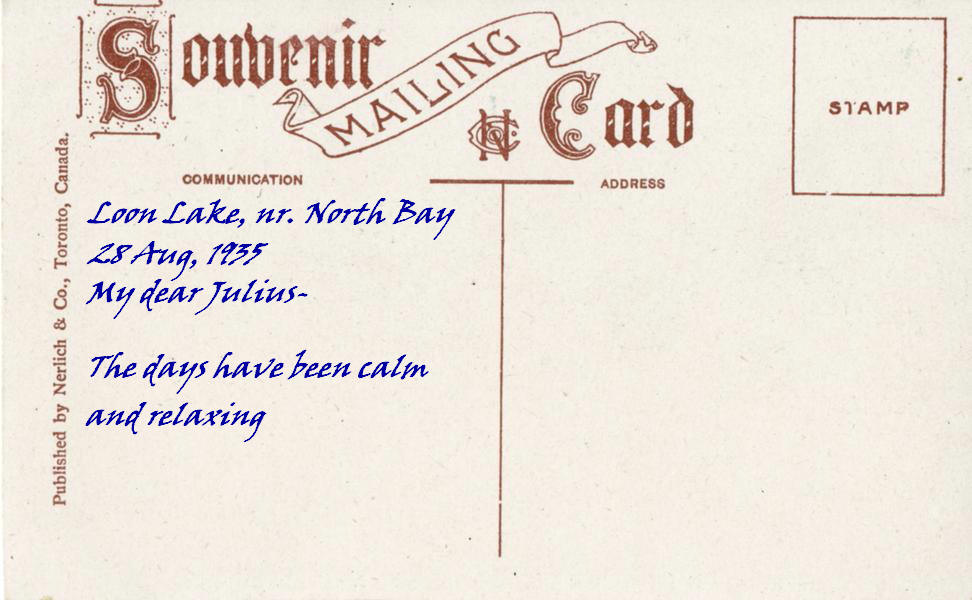 Souvenir
MAILING
Card
STAMP
COMMUNICATION
ADDRESS
Published by Nerlich & Co., Toronto, Canada.
Loon Lake, nr. North Bay
28 Aug, 1935
My dear Julius-
The days have been calm
and relaxing